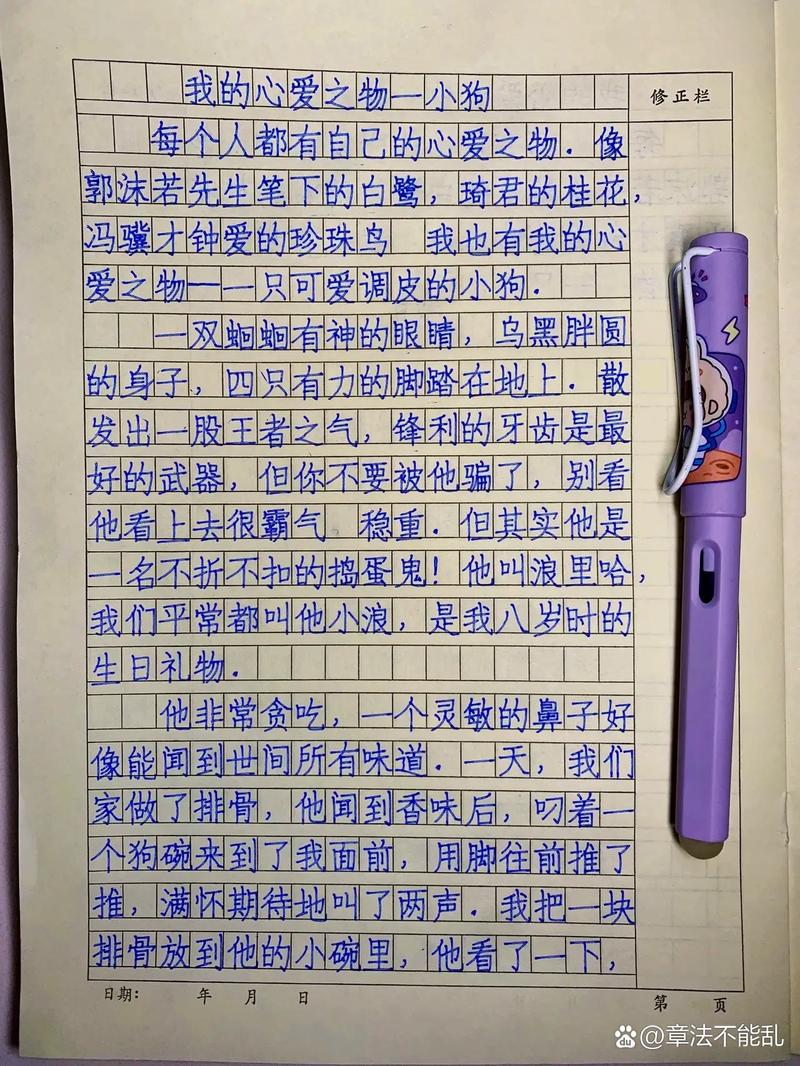 我的心爱之物一小狗
修正栏
每个人都有自己的心爱之物.像
郭沫若先生笔下的白鹭，琦君的桂花，
冯骥才钟爱的珍珠鸟 我也有我的心
爱之物一一只可爱调皮的小狗.
一双蛔蛔有神的眼睛，乌黑胖圆
的身子，四只有力的脚踏在地上.散
发出一股王者之气，锋利的牙齿是最
好的武器，但你不要被他骗了，别看
他看上去很霸气 稳重.但其实他是
一名不折不扣的捣蛋鬼！他叫浪里哈，
我们平常都叫他小浪，是我八岁时的
生日礼物.
他非常贪吃，一个灵敏的鼻子好
像能闻到世间所有味道.一天，我们
家做了排骨，他闻到香味后，叼着一
个狗碗来到了我面前，用脚往前推了
推，满怀期待地叫了两声.我把一块
排骨放到他的小碗里，他看了一下，
日期： 年 月 日
第 页
Bai du @章法不能乱